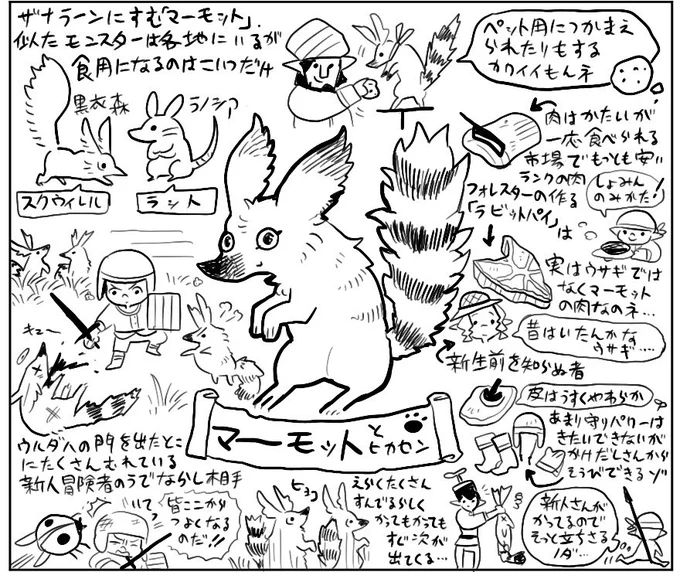 ザナラーンにすむ「マーモット」.
似たモンスターは各地にいるが
食用になるのはこいつだけ
ペット用につかまえ
られたりもする
カワイイもんネ
黒衣森
ラノシア
スクウィレル
ラット
肉はかたいが
一応食べられる
市場でもっとも安い
ランクの肉
フォレスターの作る
「ラビットパイ」は
しょみん
のみかた!
実はウサギでは
なくマーモット
の肉なのネ…
昔はいたんかな
ウサギ….
新生前を知らぬ者
キュー
皮はうすくやわらか
あまり守りパワーは
きたいできないが
かけだしさんから
そうびできるゾ
マーモットとヒカセン
ウルダハの門を出たとこ
にたくさんむれている
新人冒険者のうでならし相手
いてっ
皆ここから
つよくなる
のだ!!
ヒョコ
えらくたくさん
すんでるらしく
かってもかっても
すぐ次が
出てくる…
新人さんが
かってるので
そっと立ちさる
ノダ…